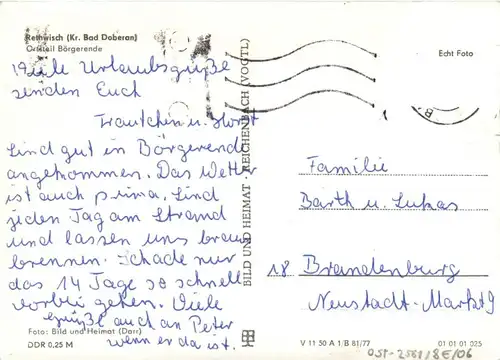 Rethwisch (Kr. Bad Doberan)
Ortsteil Börgerende
Viele Urlaubsgrüße
senden Euch
Trautchen u. Horst
Sind gut in Börgerende
angekommen. Das Wetter
ist auch prima. Sind
jeden Tag am Strand
und lassen uns braun
brennen. Schade nur
das 14 Tage so schnell
vorbei gehen. Viele
Grüße auch an Peter
wenn er da ist.
Foto: Bild und Heimat (Darr)
DDR 0,25 M
BILD UND HEIMAT · REICHENBACH (VOGTL)
Echt Foto
Familie
Barth u. Lukas
18 Brandenburg
Neustadt-Markt 9
V 11 50 A 1/B 81/77
01 01 01 025
OST-2561/8E/06